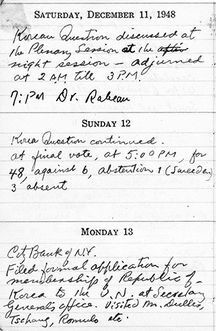 SATURDAY, DECEMBER 11, 1948
Korean Question discussed at
the Plenary Session at the after
night session – adjourned
at 2 AM till 3 PM.
7: PM Dr.
SUNDAY 12
Korea Question continued.
at final vote, at 5:00 PM, for
48, against 6, abstention 1 (Sweden)
3 absent
MONDAY 13
City Bank of N.Y.
Filed formal application for
membership of Republic of
Korea to the U.N. at Secretary
General's office. Visited Mr. Dulles,
Tschang, Romulo etc.